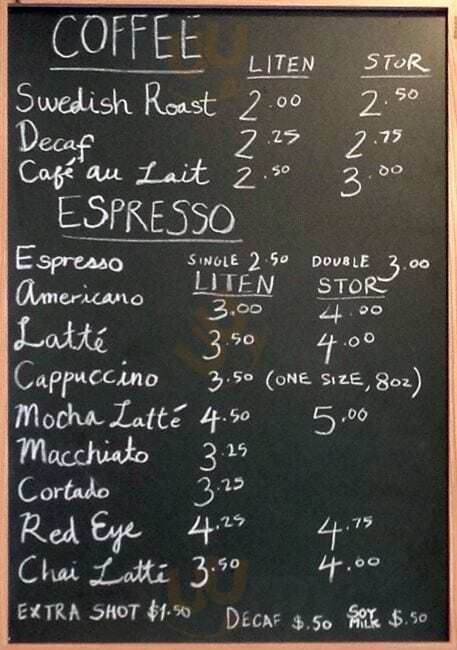 COFFEE
LITEN STOR
Swedish Roast 2.00 2.50
Decaf 2.25 2.75
Café au Lait 2.50 3.00
ESPRESSO
Espresso SINGLE 2.50 DOUBLE 3.00
LITEN STOR
Americano 3.00 4.00
Latté 3.50 4.00
Cappuccino 3.50 (ONE SIZE, 8oz)
Mocha Latté 4.50 5.00
Macchiato 3.25
Cortado 3.25
Red Eye 4.25 4.75
Chai Latté 3.50 4.00
EXTRA SHOT $1.50 DECAF $.50 SOY MILK $.50